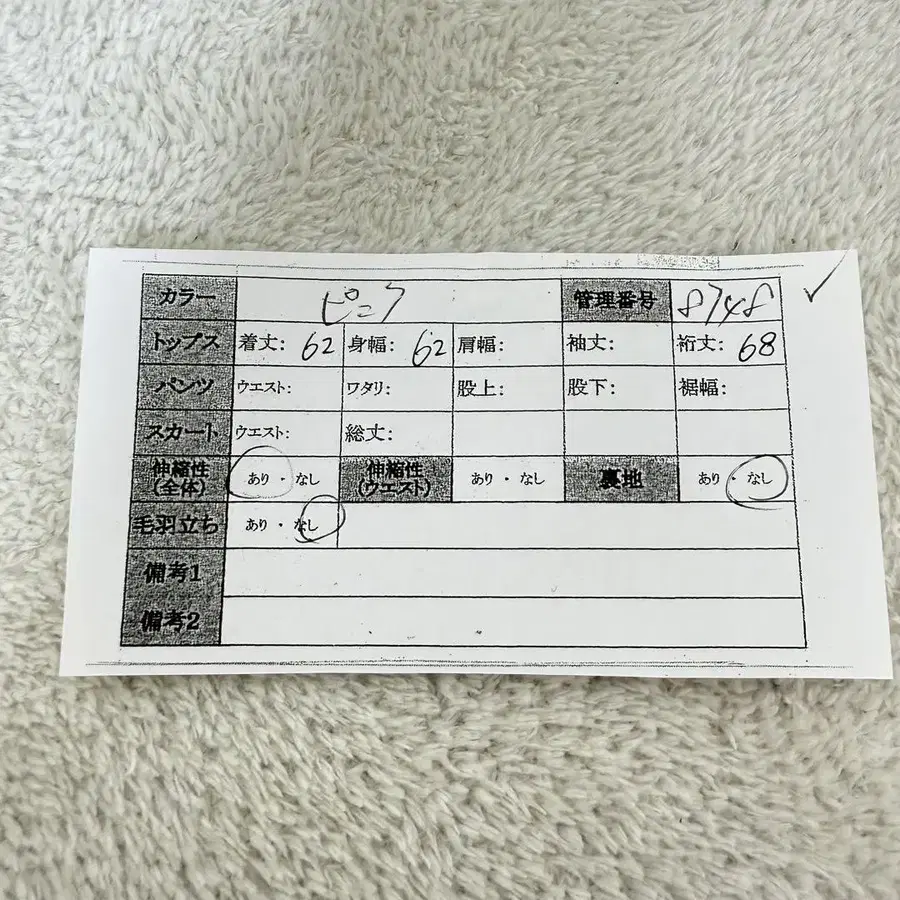 カラー ピンク 管理番号 8748
トップス 着丈: 62 身幅: 62 肩幅: 袖丈: 裄丈: 68
パンツ ウエスト: ワタリ: 股上: 股下: 裾幅:
スカート ウエスト: 総丈:
伸縮性(全体) あり・なし 伸縮性(ウエスト) あり・なし 裏地 あり・なし
毛羽立ち あり・なし
備考1
備考2